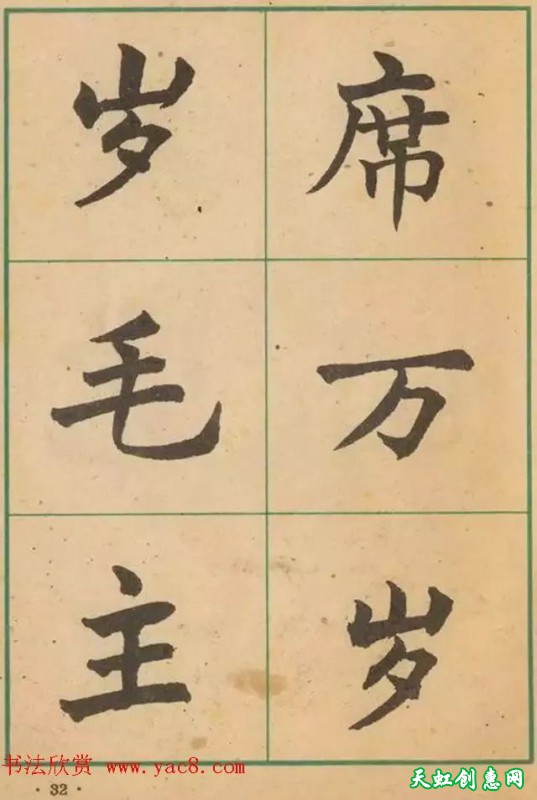 席万岁
岁毛主
书法欣赏 www.yac8.com
·32·
天虹创惠网